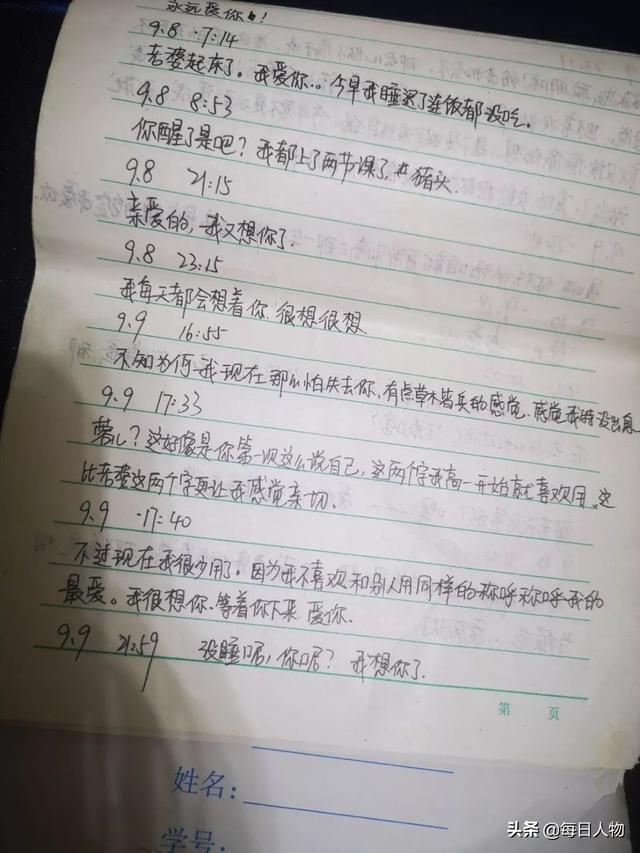 永远爱你!
9.8 17:14
老婆起床了。我爱你.. 今早我睡迟了连饭都没吃。
9.8 8:53
你醒了是吧?我都上了两节课了,猪头.
9.8 21:15
亲爱的,我又想你了.
9.8 23:15
我每天都会想着你.很想很想
9.9 16:55
不知为何.我现在那么怕失去你,有点草木皆兵的感觉.感觉我特没出息
9.9 17:33
?这好像是你第一次这么说自己,这两个字我高一开始就喜欢用.这
比老婆这两个字更让我感觉亲切.
9.9 17:40
不过现在我很少用了。因为我不喜欢和别人用同样的称呼称呼我的
最爱。我很想你.等着你下来.爱你.
9.9 21:59 没睡呢,你呢?我想你了.
第 页
姓名:
学号:
头条 @每日人物